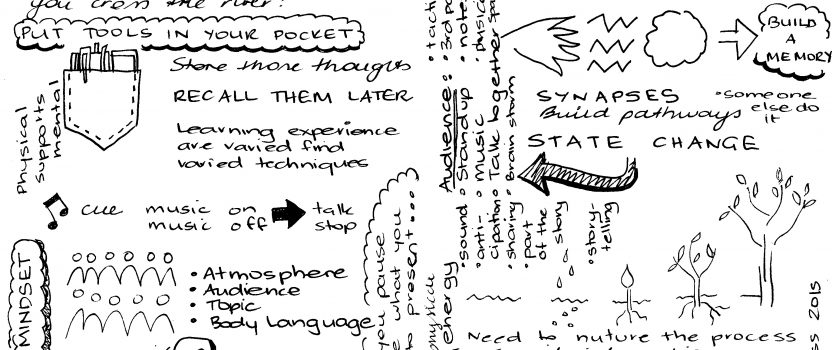 you cross the river!
PUT TOOLS IN YOUR POCKET
Store those thoughts
RECALL THEM LATER
Learning experience
are varied find
varied techniques
Physical
supports
mental
cue music on
music off
talk
stop
MINDSET
• Atmosphere
• Audience
• Topic
• Body Language
you pause
what you
to present...
energy
Audience:
• sound • Stand up • note
anti-
cipation
• music
• Talk together
sharing • Brain storm
• part
of the
story
• story-
telling
BUILD
A
MEMORY
SYNAPSES
Build pathways
• someone
else do
it
STATE CHANGE
Need to nuture the process
2015